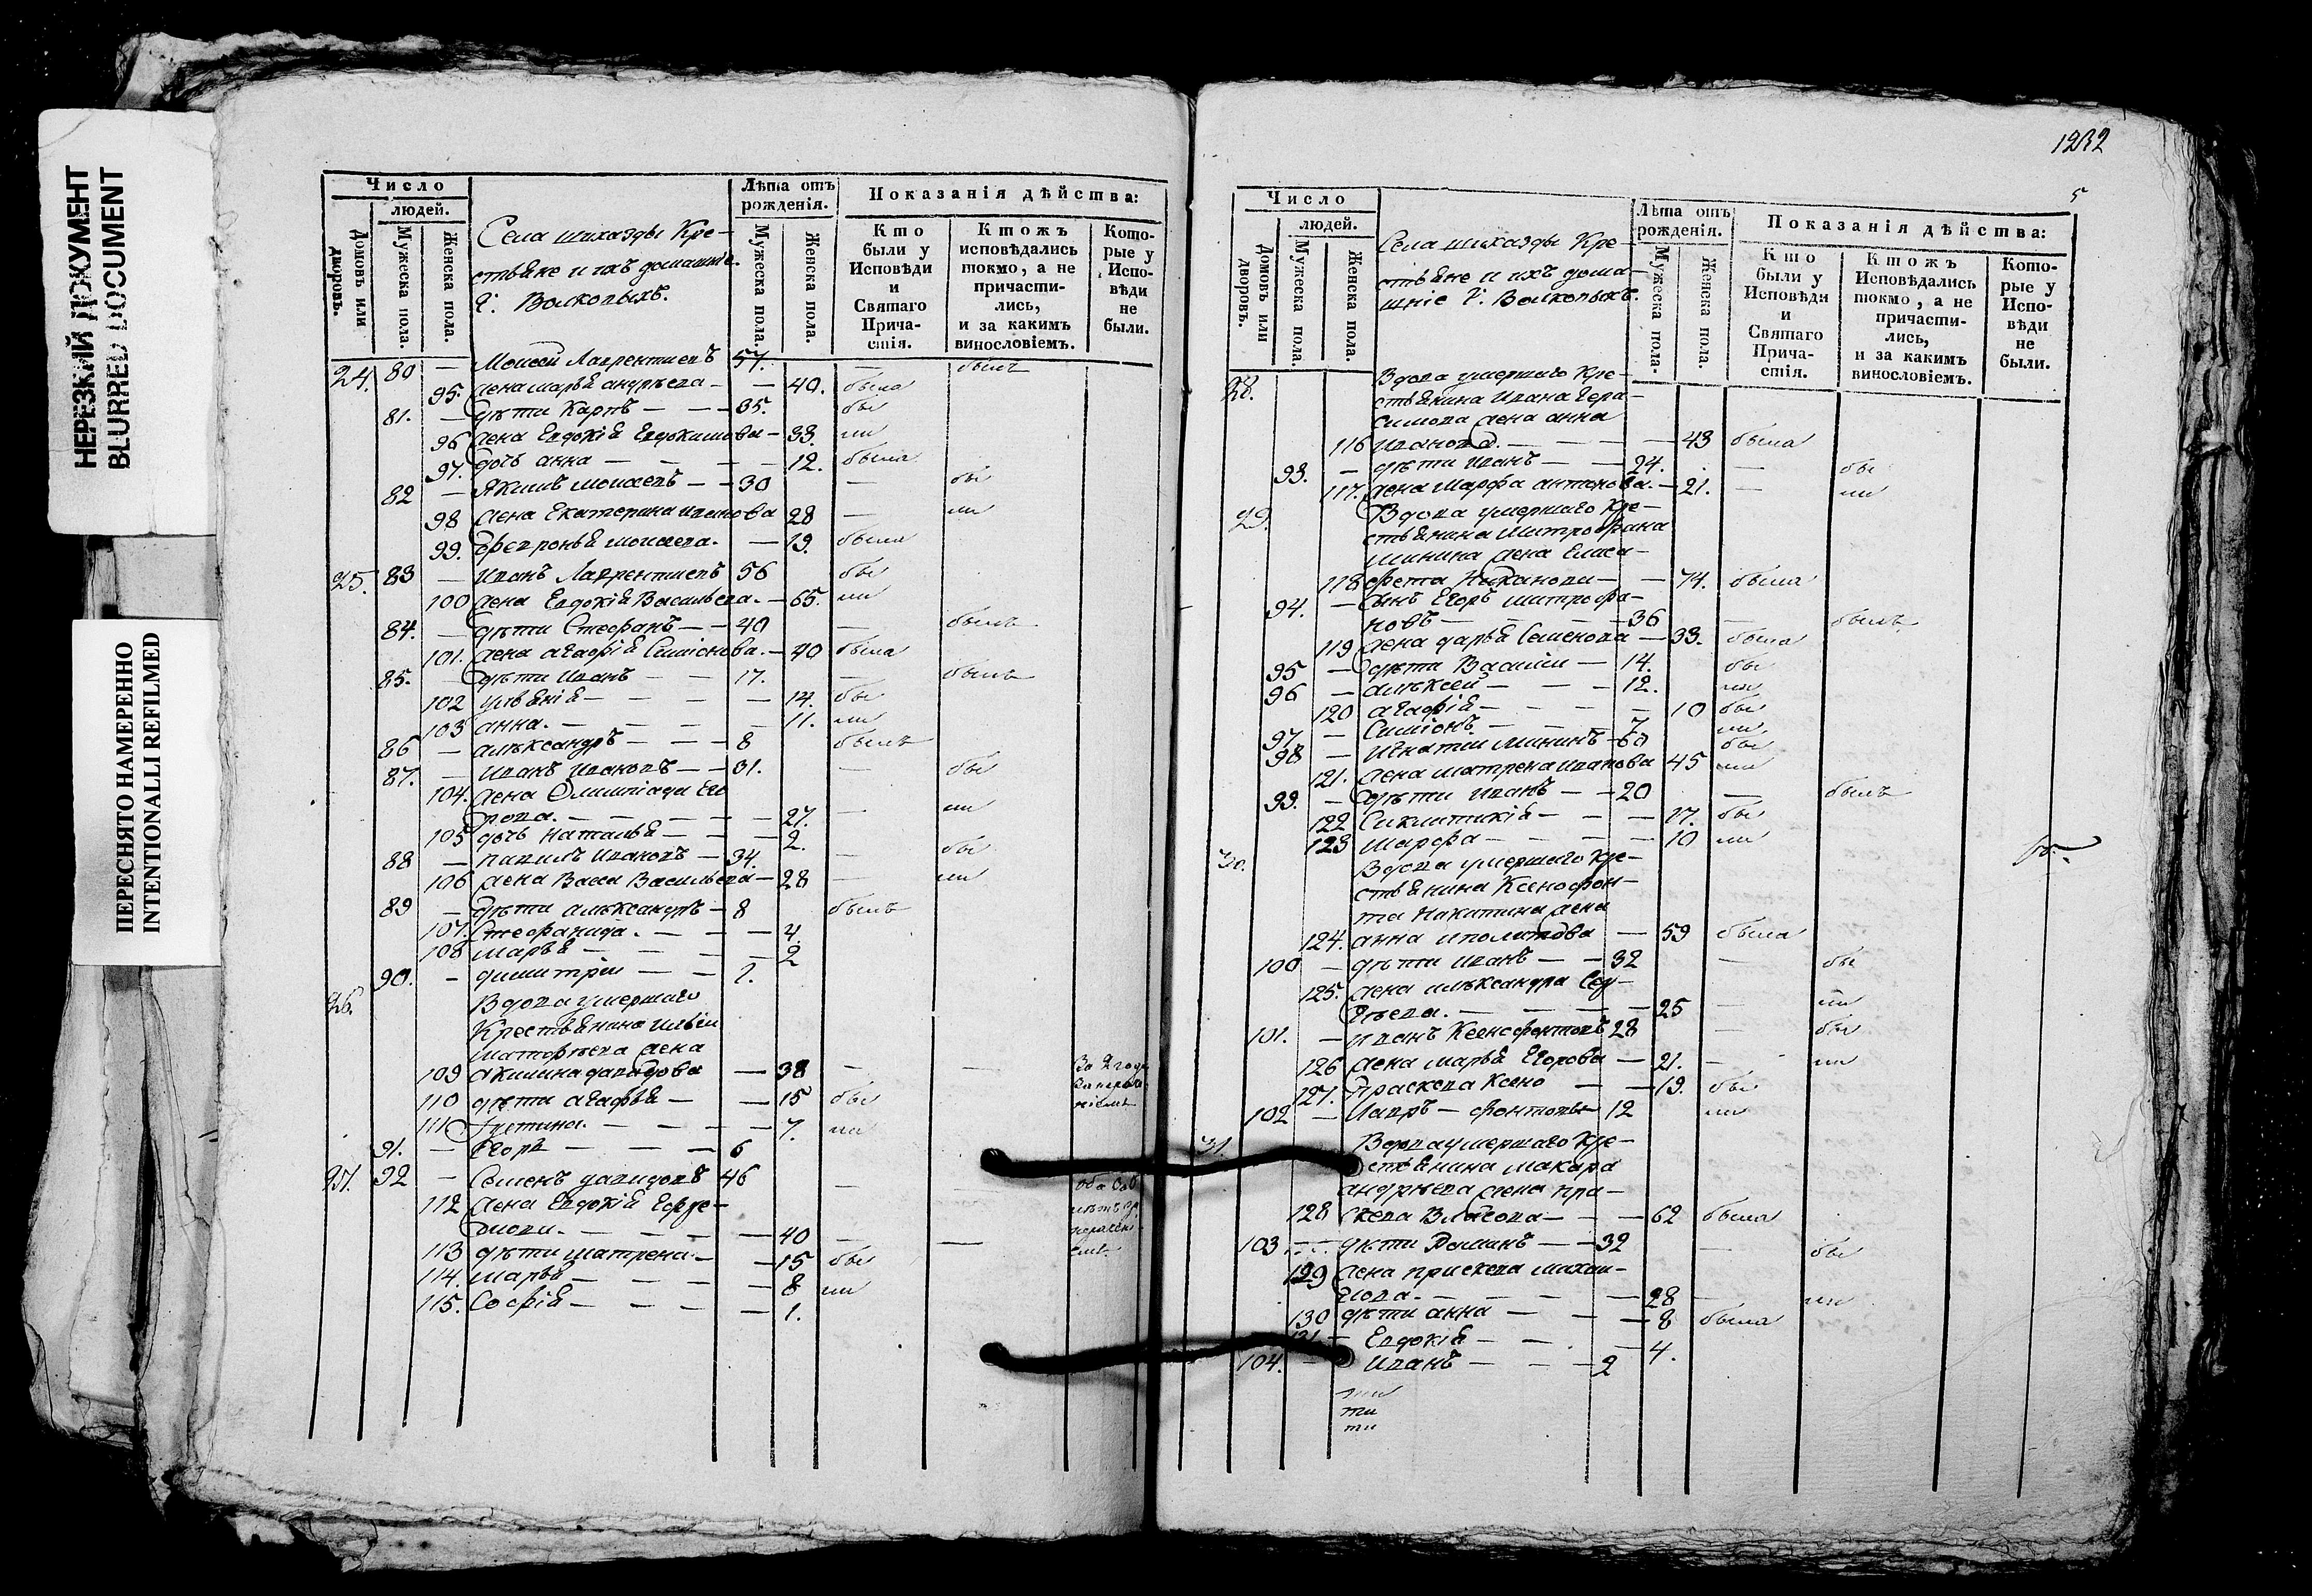 НЕРЕЗКИЙ ДОКУМЕНТ
BLURRED DOCUMENT
ПЕРЕСНЯТО НАМЕРЕННО
INTENTIONALLI REFILMED
Число
людей.
Домовъ или дворовъ.
Мужеска пола.
Женска пола.
Села шихазды Кре-
стьяне и ихъ домашніе
Г: Волковыхъ.
Лѣта отъ рожденія.
Мужеска пола.
Женска пола.
Показанія дѣйства:
Кто были у Исповѣди и Святаго Прича-стія.
Ктожъ исповѣдались токмо, а не причасти-лись, и за какимъ винословіемъ.
Кото-рые у Испо-вѣди не были.
24. 80 — Моисей Лаврентиевъ 57. — былъ
95. жена марья андреева — — 40. была
81. — дѣти Карпъ — — 35. бы
96 жена Евдокія Евдокимова — 33. ли
97. дочь анна — — — 12. была
82 — Якимъ моисеевъ — — 30 — бы
98 жена Екатерина иванова 28 — ли
99. Февронья моисеева. — 19. была
25. 83 — Иванъ Лаврентиевъ 56 бы
100 жена Евдокія Васильева. — 65. ли
84. — дѣти Стефанъ — — 40 — былъ
101. жена агафія Симіонова. — 40 была
85. — дѣти Иванъ — — 17. — былъ
102 улья́нія — — — 14. бы
103 анна. — — — — 11. ли
86 — алѣксандръ — — — 8 былъ
87. — Иванъ Ивановъ — — 31. — бы
104. жена Олимпіада Его
рова. — — — — — 27. — ли
105 дочь Наталья — — — 2.
88 — павилъ Ивановъ — 34. — бы
106 жена Васса Васильева — 28 — ли
89 — дѣти алѣксандръ — 8 былъ
107. Стефанида. — — — 4.
108 марья — — — — 2
90. — димитрій — — 1.
26. Вдова умершаго
Крестьянина Ильи
матфѣева жена
109 акилина давыдова — 38 — —
110 дѣти агафья — — 15 бы
111 Устина. — — — — 7. ли
91. — Егоръ — — — 6
27. 92 — Семенъ давидовъ 46 — —
112 жена Евдокія
— 40 — —
113 дѣти матрена — — 15 бы
114. марья — — — — 8 ли
115. Софія — — — — 1.
1232
5
Число
людей.
Домовъ или дворовъ.
Мужеска пола.
Женска пола.
Села шихазды Кре-
стьяне и ихъ дома-
шніе Г: Волковыхъ.
Лѣта отъ рожденія.
Мужеска пола.
Женска пола.
Показанія дѣйства:
Кто были у Исповѣди и Святаго Прича-стія.
Ктожъ Исповѣдались токмо, а не причасти-лись, и за какимъ винословіемъ.
Кото-рые у Испо-вѣди не были.
28. Вдова умершаго Кре-
стьянина Ивана Гера-
симова жена анна
116 Иванова. — — — — 43 была
93. — дѣти иванъ — — 24. — бы
117. жена Марфа антонова. — 21. — ли
29. Вдова умершаго Кре-
стьянина Митрофана
минина жена Елиса-
118 фета — — 74. была
94. — Сынъ Егоръ митрофа-
новъ — — — — 36 — былъ
119 жена дарья Семенова — 33. была
95 — дѣти Василіи — 14. бы
96 — алѣксей — — — 12. ли
120 агафія — — — — 10 бы
97 — Симіонъ — — — 7 ли
98 — Игнатіи мининъ — 60 бы
121. жена матрена иванова 45 ли
99. — дѣти Иванъ — — 20 — былъ
122 Сиклитикія — — — 17. бы
123 марфа — — — — 10 ли
30. Вдова умершаго Кре-
стьянина Ксенофон-
та Никитина жена
124. анна иполитова — 59 была
100 — дѣти иванъ — — 32 — бы
125. жена алѣксандра Сер-
гѣева. — — — — 25 — ли
101. — иванъ Ксенофонтовъ 28 — бы
126 жена марья Егорова — 21. — ли
127. Праскева Ксено — — 19. бы
102 — Лавръ — фонтовы 12 ли
31. Вдова умершаго Кре-
стьянина макара
андрѣева жена пра-
128 скева Власова — — — 62 была
103 дѣти Романъ — — 32 — бы
129 жена прискева михаи-
лова. — — — — — 28 — ли
130 дѣти анна — — — 8 была
131 — Евдокія — — — 4.
104. — Иванъ — — — 2